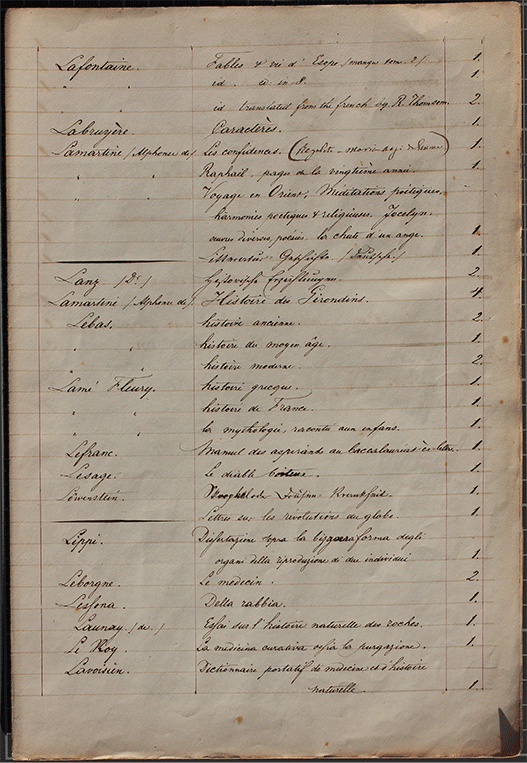 Lafontaine. Fables & vie d'Esope /manque tom. 2/. 1.
" " id. id. in 8. 1.
" " id translated from the french by R. Thomson. 2.
Labruyère. Caractères. 1.
Lamartine /Alphonse de/. Les confidences. 1.
" " Raphaël. pages de la vingtième année. 1.
" " Voyage en Orient; Méditations poëtiques,
harmonies poetiques & religieuses. Jocelyn.
œuvres diverses, poësies. la chute d'un ange. 1.
1.
Lanz /Dr/ 2.
Lamartine /Alphonse de/. Histoire des Girondins. 4.
Lebas. histoire ancienne. 2.
" " histoire du moyen âge. 1.
" " histoire moderne. 2.
Lamé Fleury. histoire grecque. 1.
" " histoire de France. 1.
" " la mythologie, racontée aux enfans. 1.
Lefranc. Manuel des aspirands au baccalauréat-ès-lettres. 1.
Lesage. Le diable boiteux. 1.
Löwenstein. 1.
Lettres sur les révolutions du globe. 1.
Lippi. Dissertazione sopra la bizzarra forma degli
organi della riproduzione di due individui 1.
Leborgne. Le medecin. 2.
Lessona. Della rabbia. 1.
Launay /de/ Essai sur l'histoire naturelle des roches. 1.
Le Roy. La medicina curativa ossia la purgazione. 1.
Lavoisien. Dictionnaire portatif de médecine et d'histoire
naturelle. 1.